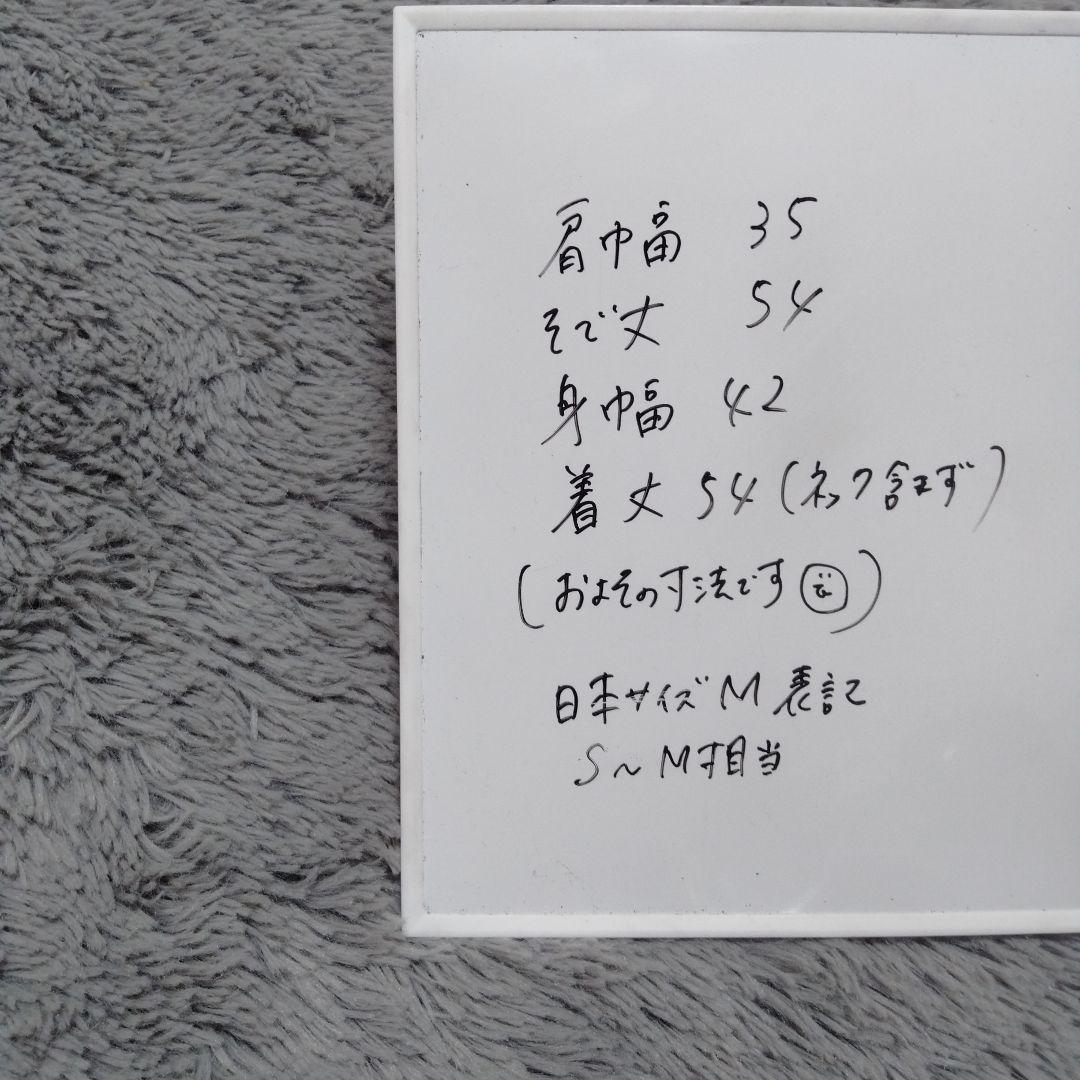 肩巾幅 35
そで丈 54
身巾幅 42
着丈 54 (ネック含まず)
(およその寸法です)
日本サイズM表記
S~M寸相当